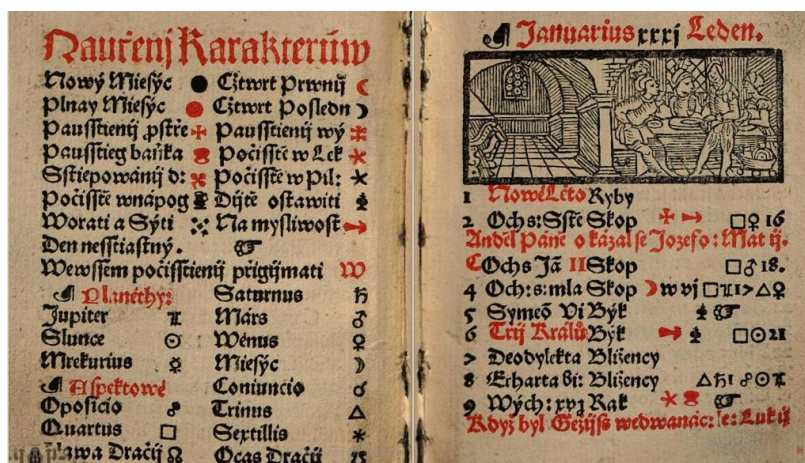 Naučenj Karakterůw
Nowý Miesýc ● Cžtwrt Prwnij ☾
Plnay Miesýc ● Cžtwrt Posledn ☽
Pausstienij pstře Pausstienij wý
Pausstieg baňka Počisstě w Lek
Sstiepowánij d: Počisstě w Pil:
Počisstě wnápog Dijtě ostawiti
Worati a Sýti Na mysliwost
Den nesstiastný. ☞
Wewssem počisstienij přigijmati W
Planéthy:
Saturnus ♄
Jupiter ♃ Márs ♂
Slunce ☉ Wénus ♀
Mrekurius ☿ Miesýc ☽
Aspektowé Coniuncio ☌
Oposicio ☍ Trinus △
Quartus □ Sextilis ✶
Hlawa Dračij ☊ Ocas Dračij ☋
Januarius xxxj Leden.
1 Nowé Léto Ryby
2 Ochs: Sstě Skop □♀ 16
Anděl Páně o kázal se Jozefo: Mat ij.
C Ochs Jã II Skop □♂ 18.
4 Och: s: mla Skop ☽ w vj □♃ 1> △♀
5 Symeõ Vi Býk ☞
6 Trij Králů Býk □☉ 21
> Deodylekta Bližency
8 Erharta bi: Bližency △♄ 1 ☍☉♃
9 Wých: xvj Rak ☞
Když byl Gežijš wedwanác: le: Luk ij